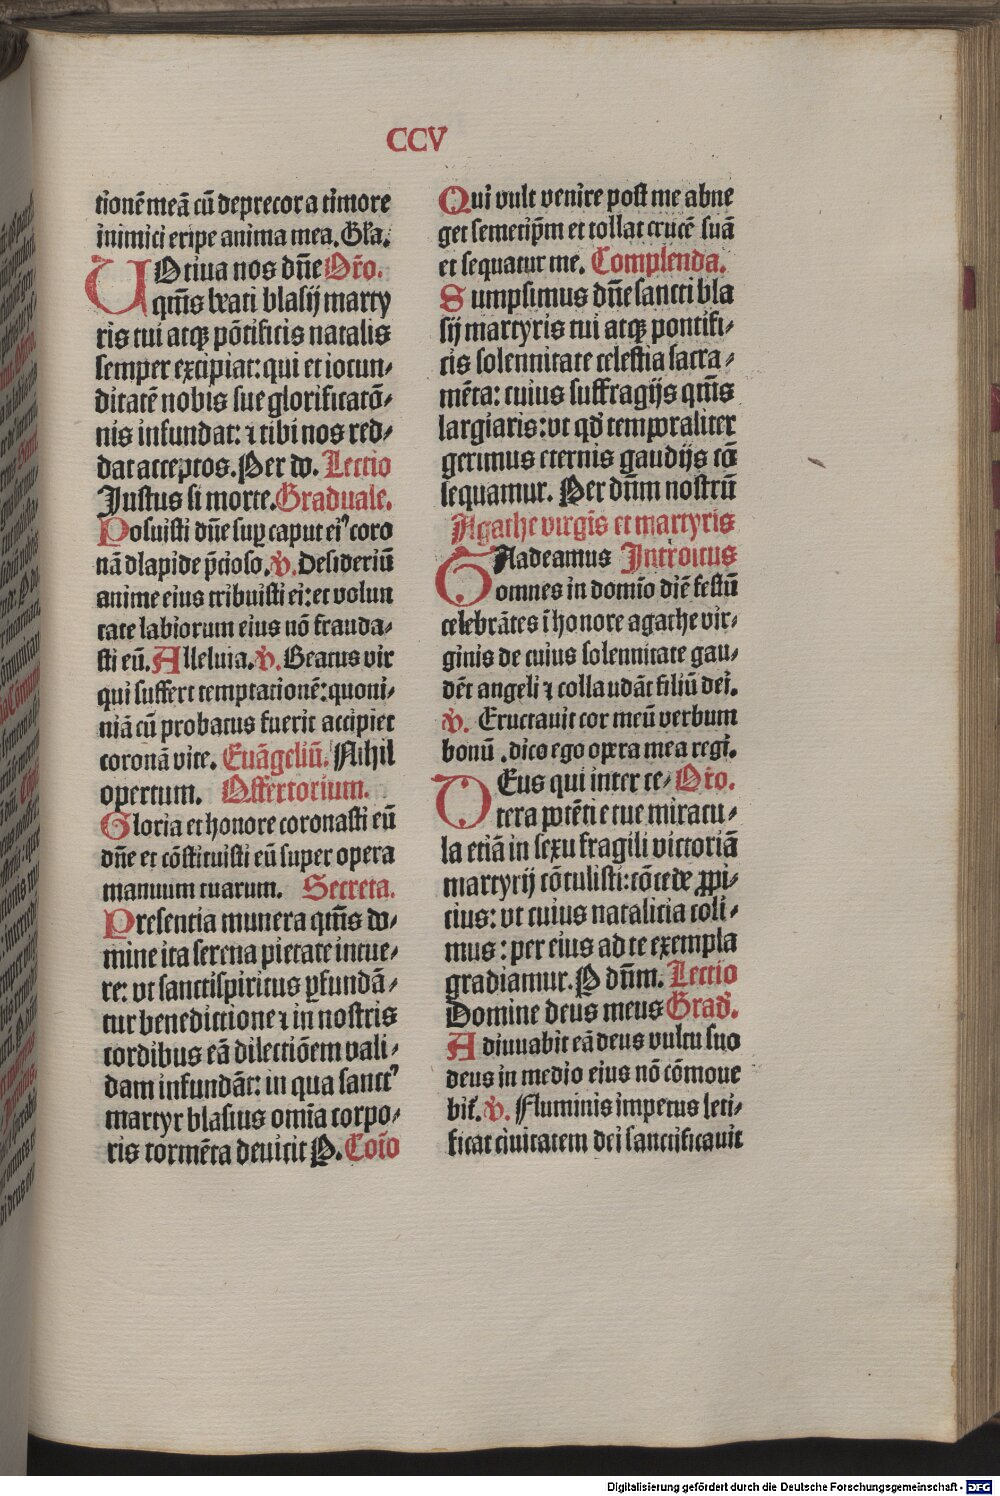 CCV
tionē meā cū deprecor a timore
inimici eripe anima mea. Gl'a.
VOtiua nos dñe Or̄o.
qm̄s beati blasij marty
ris tui atqꝫ pōtificis natalis
semper excipiat: qui et iocun⸗
ditatē nobis sue glorificatō⸗
nis infundat: ⁊ tibi nos red⸗
dat acceptos. Per do. Lectio
Justus si morte. Graduale.
Posuisti dñe suꝑ caput ei⁹ coro
nā d lapide p̄cioso. ℣. Desideriū
anime eius tribuisti ei: et volun
tate labiorum eius nō frauda⸗
sti eū. Alleluia. ℣. Beatus vir
qui suffert temptationē: quoni⸗
niā cū probatus fuerit accipiet
coronā vite. Euāgeliū. Nihil
opertum. Offertorium.
Gloria et honore coronasti eū
dñe et cōstituisti eū super opera
manuum tuarum. Secreta.
Presentia munera qm̄s do⸗
mine ita serena pietate intue⸗
re: vt sanctispiritus ꝑfundā⸗
tur benedictione ⁊ in nostris
cordibus eā dilectiōem vali⸗
dam infundāt: in qua sanct⁹
martyr blasius omīa corpo⸗
ris tormēta deuicit P. Coīo
Qui vult venire post me abne
get semetip̄m et tollat crucē suā
et sequatur me. Complenda.
Sumpsimus dñe sancti bla
sij martyris tui atqꝫ pontifi⸗
cis solennitate celestia sacra⸗
mēta: cuius suffragijs qm̄s
largiaris: vt qd̄ temporaliter
gerimus eternis gaudijs cō
sequamur. Per dn̄m nostrū
Agathe virgīs et martyris
GAudeamus Introitus
omnes in domīo diē festū
celebrātes ī honore agathe vir⸗
ginis de cuius solennitate gau⸗
dēt angeli ⁊ collaudāt filiū dei.
℣. Eructauit cor meū verbum
bonū . dico ego opera mea regi.
DEus qui inter ce⸗ Or̄o.
tera potēti e tue miracu⸗
la etiā in sexu fragili victoriā
martyrij cōtulisti: cōcede ꝓpi⸗
cius: vt cuius natalicia coli⸗
mus: per eius ad te exempla
gradiamur. P dn̄m. Lectio
Domine deus meus Grad̄.
Adiuuabit eā deus vultu suo
deus in medio eius nō cōmoue
bit̄. ℣. Fluminis impetus leti⸗
ficat ciuitatem dei sanctificauit
Digitalisierung gefördert durch die Deutsche Forschungsgemeinschaft - DFG